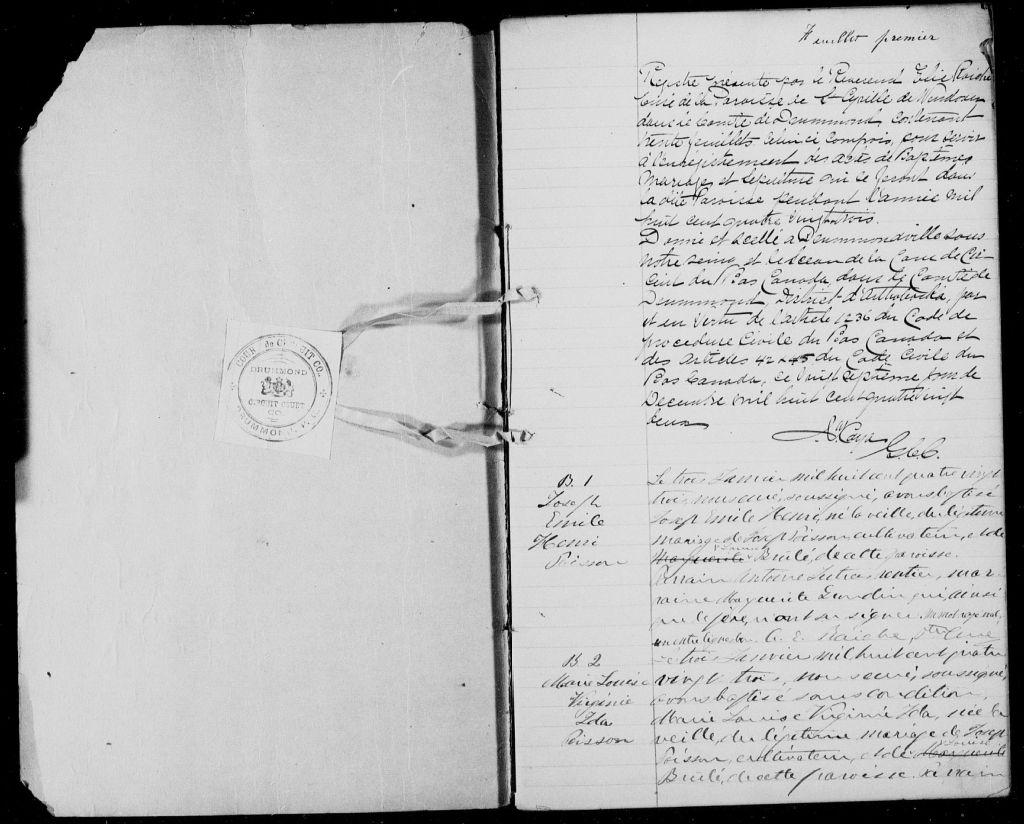 COUR de CIRCUIT CO.
DRUMMOND
CIRCUIT COURT
CO.
DRUMMOND, P.Q.
Feuillet premier
Registre présenté par le Reverend Elie
Curé de la Paroisse de St Cyrille de Wendover
dans le Comté de Drummond, contenant
trente feuillets celui ci compris, pour servir
à l'enrégistrement des actes de Baptêmes
Mariages et Sépulture qui se feront dans
la dite Paroisse pendant l'année mil
huit cent quatre vingt trois.
Donné et scellé à Drummondville sous
notre seing et le sceau de la Cour de Cir-
cuit du Bas Canada, dans le Comté de
Drummond, District d'Arthabaska, par
et en vertu de l'article 1236 du Code de
procedure Civile du Bas Canada et
des articles 42 & 45 du Code Civile du
Bas Canada, ce vingt septième jour de
Decembre mil huit cent quatre vingt
deux
B. 1
Joseph
Emile
Henri
Poisson
Le trois Janvier mil huit cent quatre vingt
trois, nous curé, soussigné, avons baptisé
Joseph Emile Henri, né la veille, du légitime
mariage de Joseph Poisson cultivateur, et de
Marguerite Brulé, de cette paroisse.
Parrain Antoine rentier, mar-
raine Marguerite qui, ainsi
que le père, n'ont su signer. Un mot rayé nul,
un entreligne bon. C. E. Ptre Curé
B. 2
Marie Louise
Virginie
Ida
Poisson
Le trois Janvier mil huit cent quatre
vingt trois, nous curé, soussigné,
avons baptisé sous condition,
Marie Louise Virginie Ida, née la
veille, du légitime mariage de Joseph
Poisson, cultivateur, et de Marguerite
Brulé, de cette paroisse. Parrain